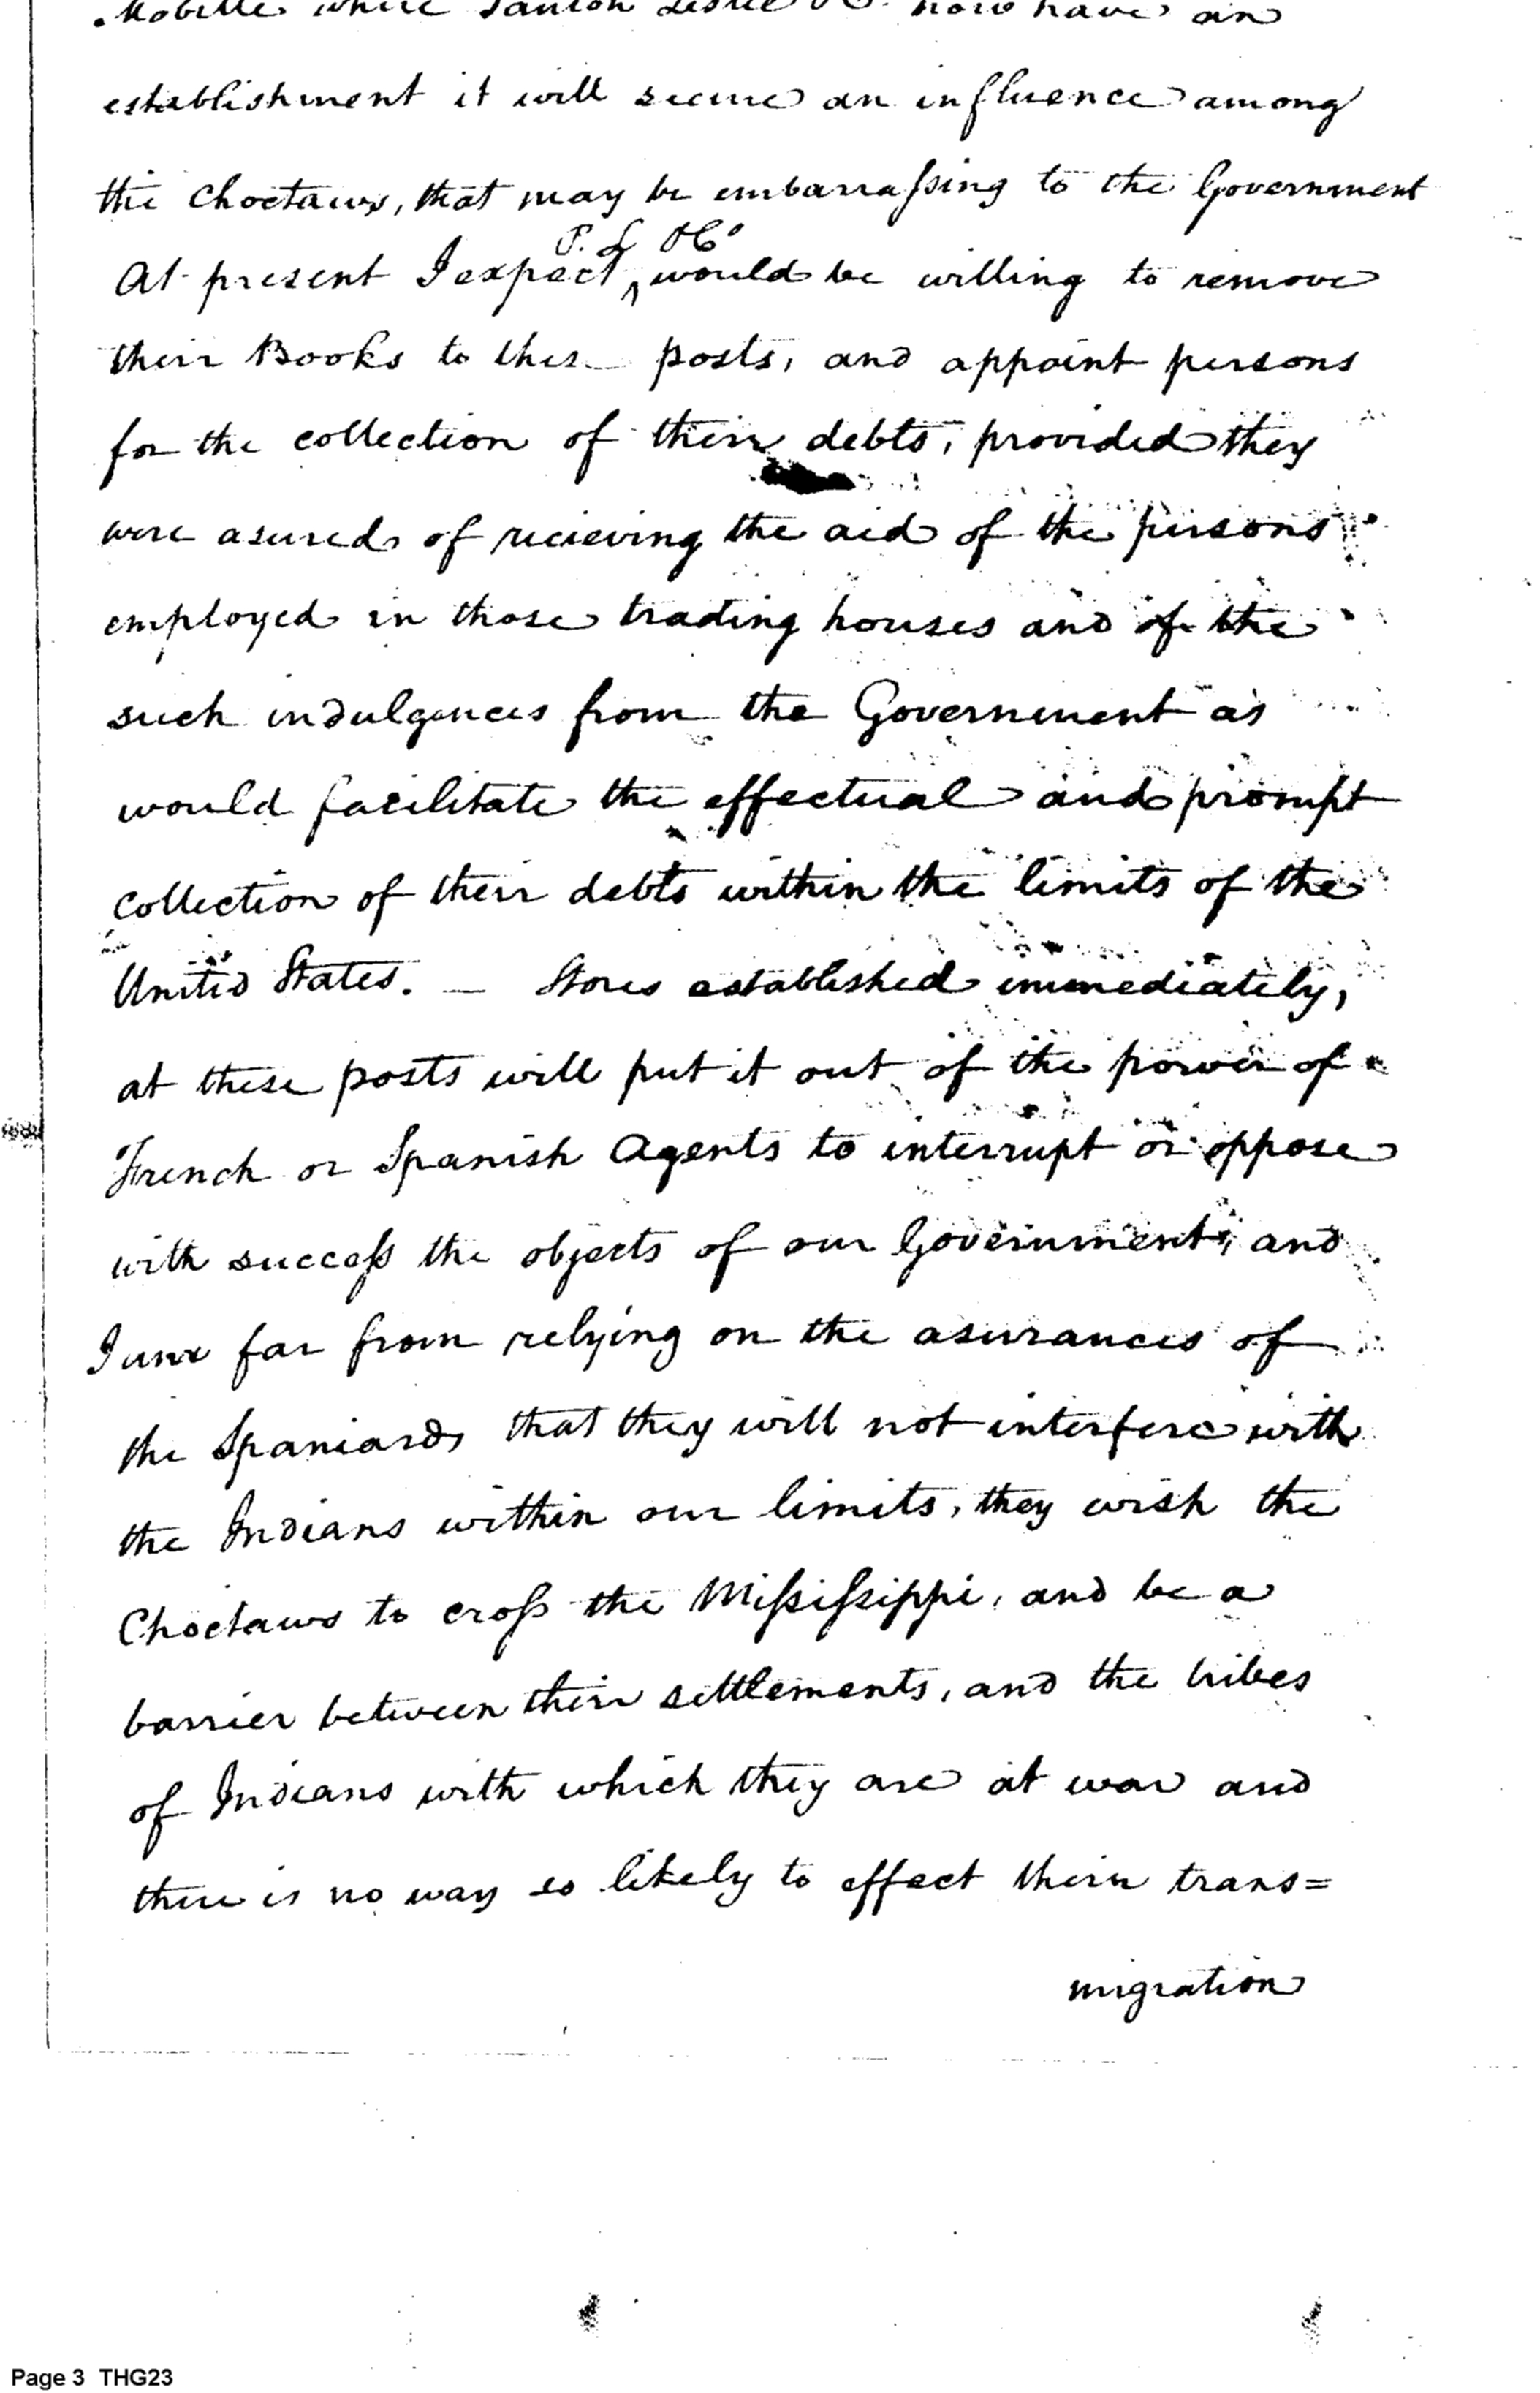 Mobille where Panton Leslie &C. now have an
establishment it will secure an influence among
the Choctaws, that may be embarraſsing to the Government
P. L &Cº
At present I expect ^ would be willing to remove
their Books to thes posts, and appoint persons
for the collection of their debts, provided they
were asured of recieving the aid of the persons
employed in those trading houses and of the
such indulgences from the Government as
would facilitate the effectual and prompt
collection of their debts within the limits of the
United States. — Stores established immediately,
at these posts will put it out of the power of
French or Spanish Agents to interrupt or oppose
with succeſs the objects of our Government, and
I am far from relying on the asurances of
the Spaniards that they will not interfere with
the Indians within our limits, they wish the
Choctaws to croſs the Miſsiſsippi, and be a
barrier between their settlements, and the tribes
of Indians with which they are at war and
there is no way so likely to effect their trans=
migration
Page 3 THG23